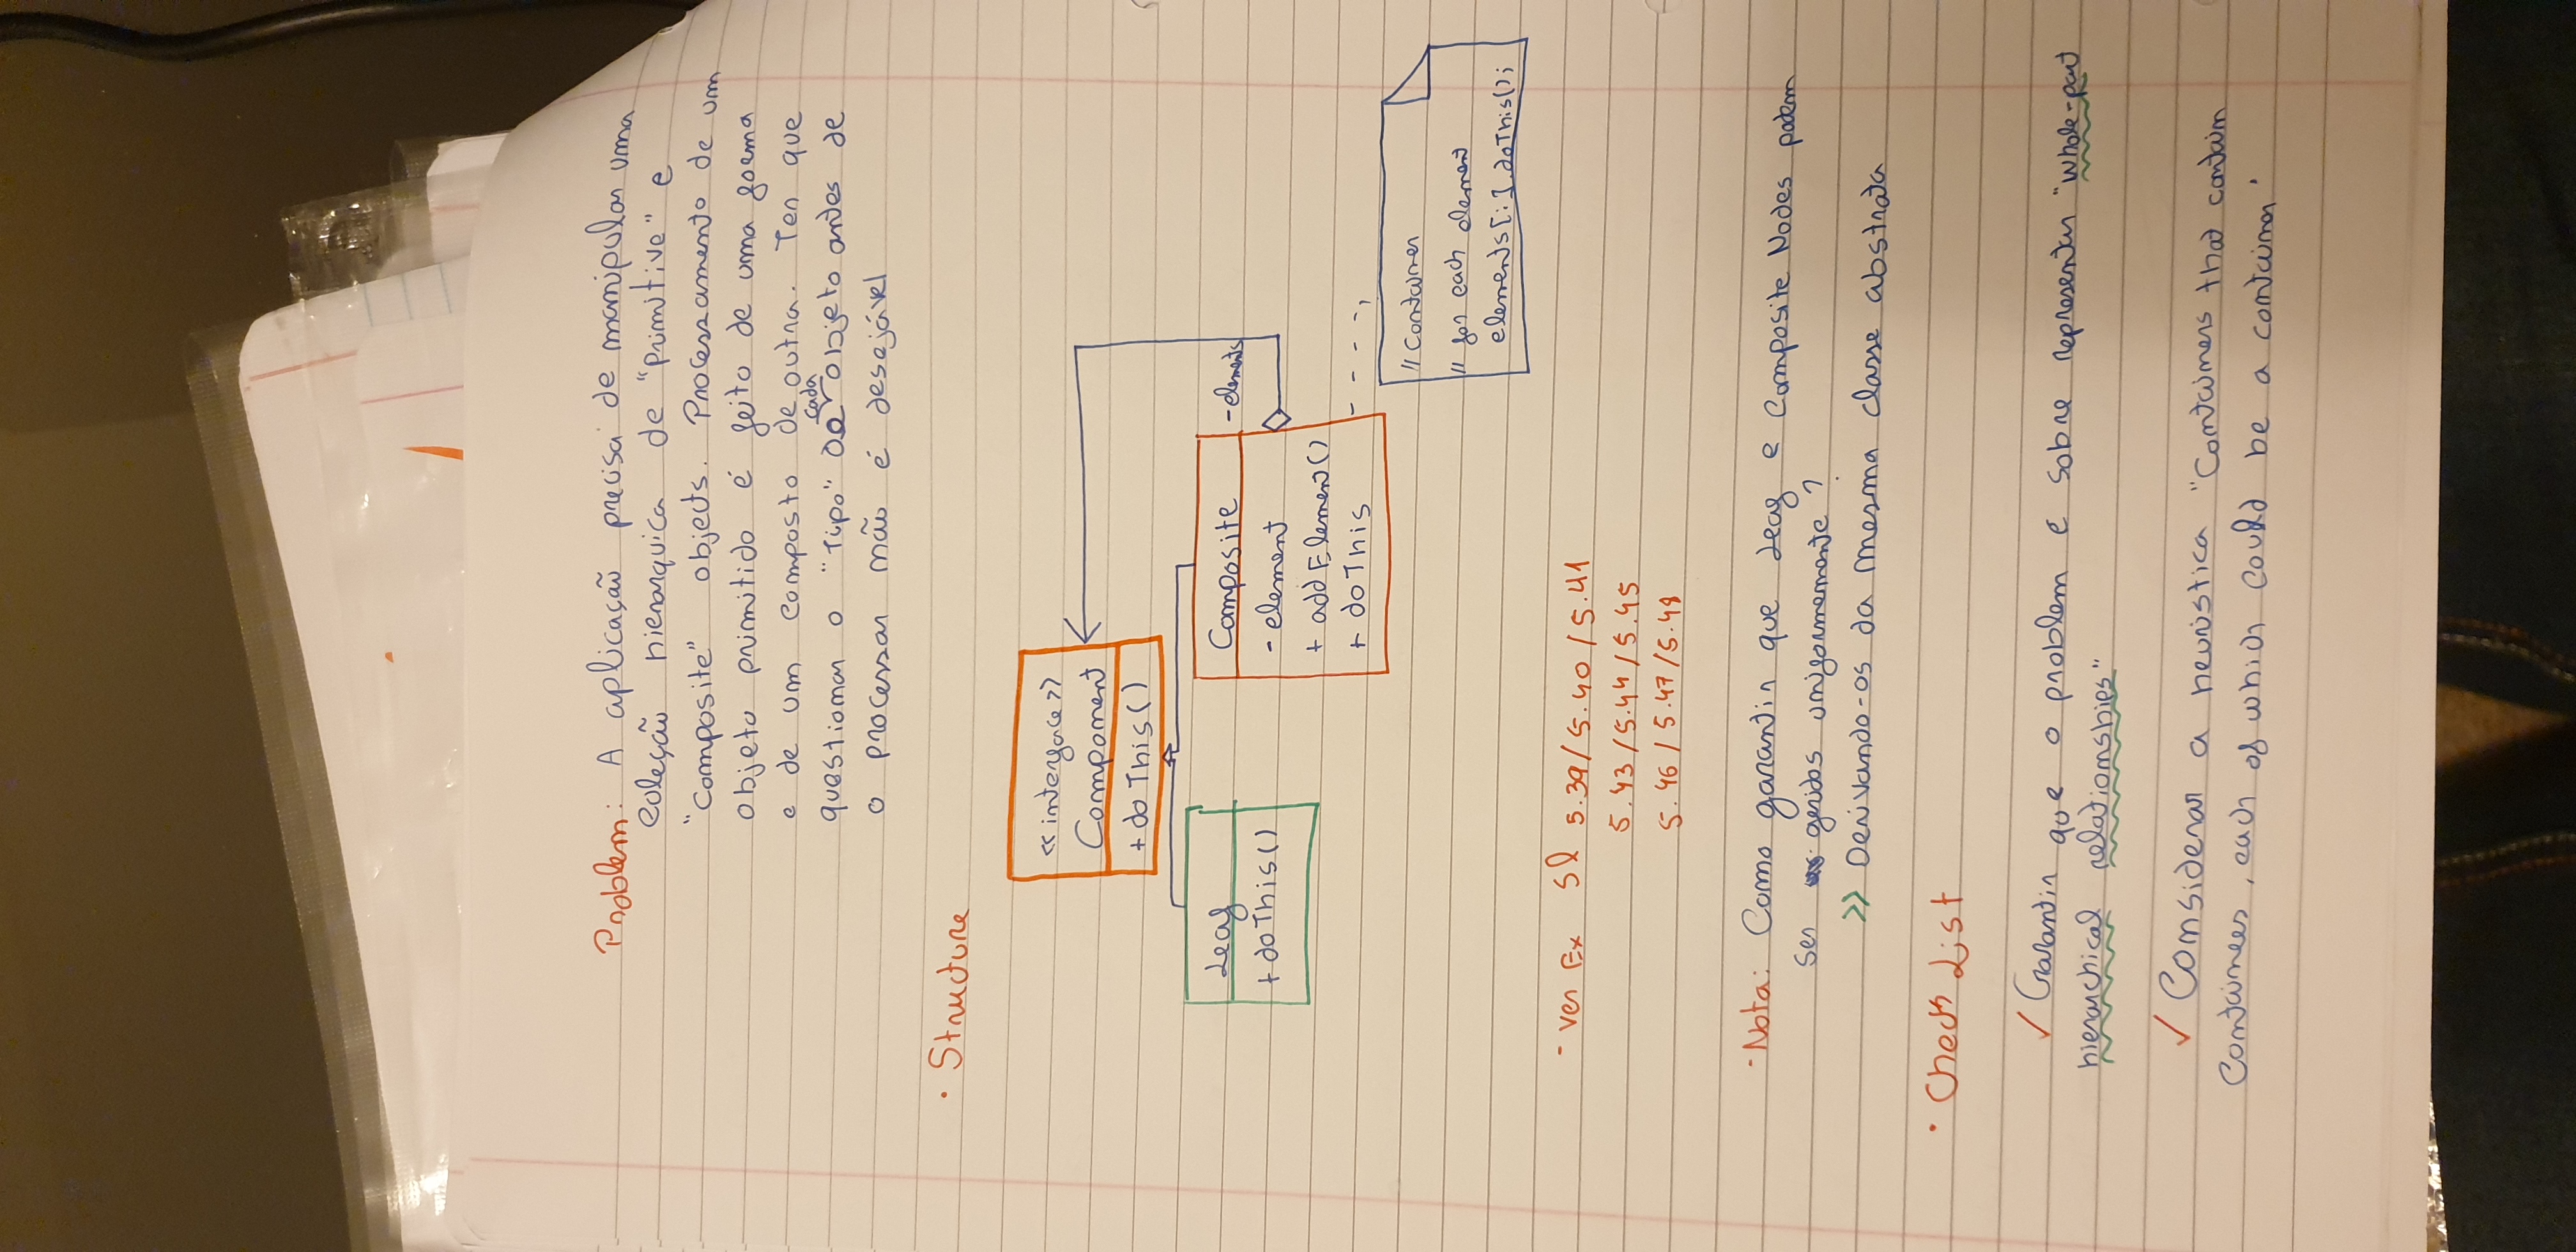 Problem: A aplicação precisa de manipular uma
coleção hierarquica de "primitive" e
"composite" objects. Processamento de um
objeto primitido é feito de uma forma
e de um composto de outra. Ter que
cada
questionar o "Tipo" de objeto antes de
o processar não é desejável
• Structure
<<interface>>
Component
+ doThis()
Leaf
+ doThis()
Composite
- element
+ addElement()
+ doThis
- elements
// Container
// for each element
elements[i].doThis();
- Ver Ex Sl 5.39 / 5.40 / 5.41
5.43 / 5.44 / 5.45
5.46 / 5.47 / 5.48
- Nota: Como garantir que Leaf e Composite Nodes podem
ser geridos uniformemente?
>> Derivando-os da mesma classe abstrata
• Check List
✓ Garantir que o problem e sobre representar "whole-part
hierarchical relationships"
✓ Considerar a heuristica "Containers that contain
Containees, each of which could be a container"